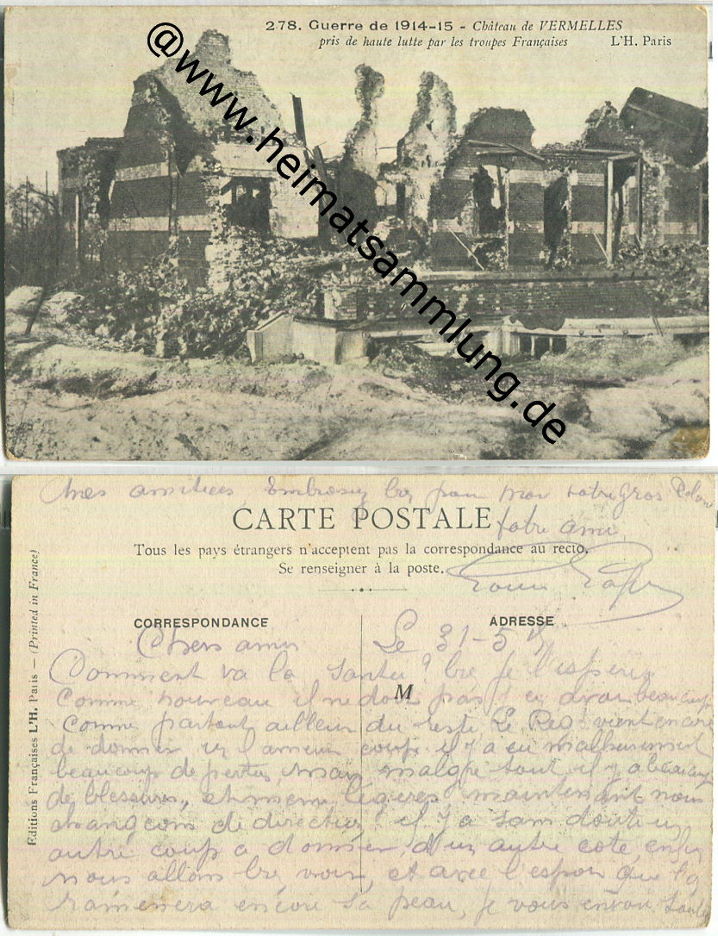 278. Guerre de 1914-15 - Château de VERMELLES
pris de haute lutte par les troupes Françaises L'H. Paris
@www.heimatsammlung.de
Mes amitiées Embrassez pour moi votre gros
CARTE POSTALE
Votre ami
Tous les pays étrangers n'acceptent pas la correspondance au recto.
Se renseigner à la poste.
Editions Françaises L'H. Paris — (Printed in France)
CORRESPONDANCE
ADRESSE
Chers amis Le 31-5
Comment va la santer je l'espère
M
Comme nouveau il ne doit pas y en avoir beaucoup
Comme partout ailleur du reste Le vient encore
de donner coup il y a eu malheureusement
beaucoup de pertes, mais malgré tout il y a beaucoup
de blessures, légères maintenant nous
changeons de direction il y a sans doute un
autre coup a donner d'un autre coté enfin
nous allons voir, et avec l'espoir que l'on
ramenera encore sa peau, je vous envoi